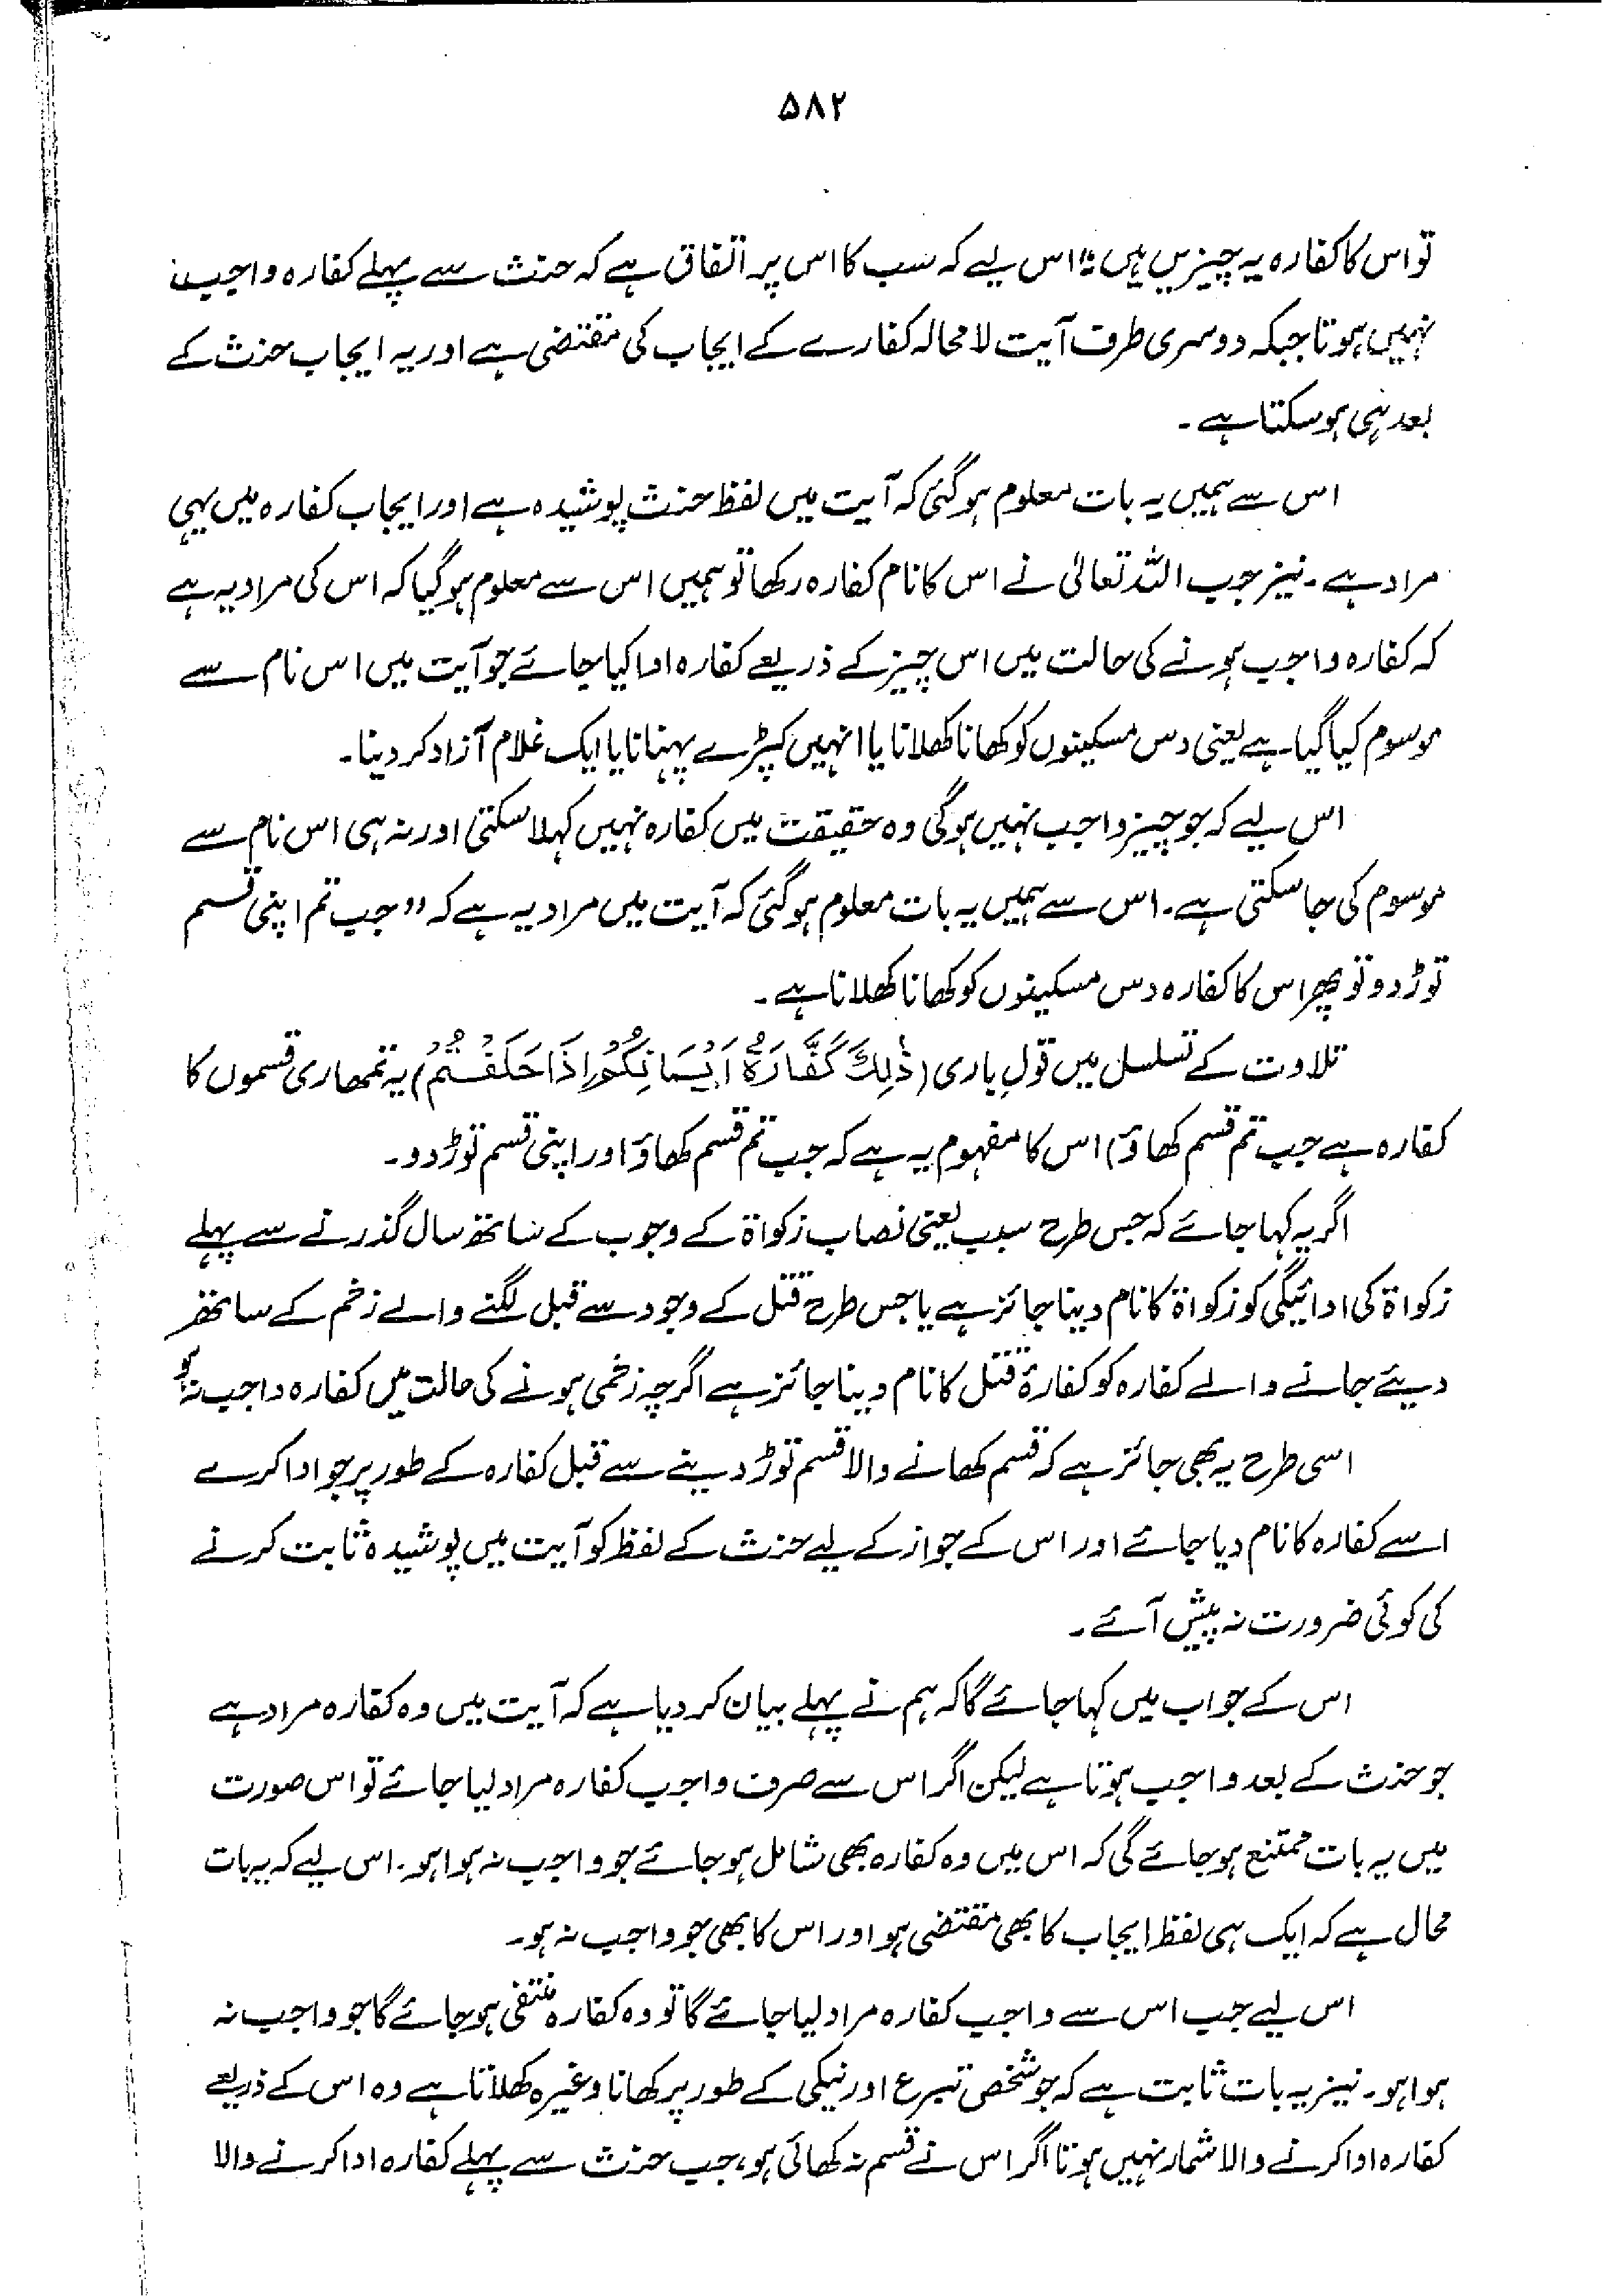 ۵۸۲
تو اس کا کفارہ یہ چیزیں ہیں" اس لیے کہ سب کا اس پر اتفاق ہے کہ حنث سے پہلے کفارہ واجب
نہیں ہوتا جبکہ دوسری طرف آیت لامحالہ کفارے کے ایجاب کی مقتضی ہے اور یہ ایجاب حنث کے
بعد ہی ہو سکتا ہے۔
اس سے ہمیں یہ بات معلوم ہو گئی کہ آیت میں لفظ حنث پوشیدہ ہے اور ایجاب کفارہ میں یہی
مراد ہے۔ نیز جب اللہ تعالیٰ نے اس کا نام کفارہ رکھا تو ہمیں اس سے معلوم ہو گیا کہ اس کی مراد یہ ہے
کہ کفارہ واجب ہونے کی حالت میں اس چیز کے ذریعے کفارہ ادا کیا جائے جو آیت میں اس نام سے
موسوم کیا گیا ہے یعنی دس مسکینوں کو کھانا کھلانا یا انہیں کپڑے پہنانا یا ایک غلام آزاد کر دینا۔
اس لیے کہ جو چیز واجب نہیں ہوگی وہ حقیقت میں کفارہ نہیں کہلا سکتی اور نہ ہی اس نام سے
موسوم کی جا سکتی ہے۔ اس سے ہمیں یہ بات معلوم ہو گئی کہ آیت میں مراد یہ ہے کہ "جب تم اپنی قسم
توڑ دو تو پھر اس کا کفارہ دس مسکینوں کو کھانا کھلانا ہے۔
تلاوت کے تسلسل میں قولِ باری (ذٰلِكَ كَفَّارَةُ اَيْمَانِكُمْ اِذَا حَلَفْتُمْ) یہ تمھاری قسموں کا
کفارہ ہے جب تم قسم کھاؤ) اس کا مفہوم یہ ہے کہ جب تم قسم کھاؤ اور اپنی قسم توڑ دو۔
اگر یہ کہا جائے کہ جس طرح سبب یعنی نصاب زکواۃ کے وجوب کے ساتھ سال گذرنے سے پہلے
زکواۃ کی ادائیگی کو زکواۃ کا نام دینا جائز ہے یا جس طرح قتل کے وجود سے قبل لگنے والے زخم کے ساتھ
دیئے جانے والے کفارہ کو کفارۂ قتل کا نام دینا جائز ہے اگرچہ زخمی ہونے کی حالت میں کفارہ واجب نہ ہو
اسی طرح یہ بھی جائز ہے کہ قسم کھانے والا قسم توڑ دینے سے قبل کفارہ کے طور پر جو ادا کرے
اسے کفارہ کا نام دیا جائے اور اس کے جواز کے لیے حنث کے لفظ کو آیت میں پوشیدہ ثابت کرنے
کی کوئی ضرورت نہ پیش آئے۔
اس کے جواب میں کہا جائے گا کہ ہم نے پہلے بیان کر دیا ہے کہ آیت میں وہ کفارہ مراد ہے
جو حنث کے بعد واجب ہوتا ہے لیکن اگر اس سے صرف واجب کفارہ مراد لیا جائے تو اس صورت
میں یہ بات ممتنع ہو جائے گی کہ اس میں وہ کفارہ بھی شامل ہو جائے جو واجب نہ ہوا ہو۔ اس لیے کہ یہ بات
محال ہے کہ ایک ہی لفظ ایجاب کا بھی مقتضی ہو اور اس کا بھی جو واجب نہ ہو۔
اس لیے جب اس سے واجب کفارہ مراد لیا جائے گا تو وہ کفارہ منتفی ہو جائے گا جو واجب نہ
ہوا ہو۔ نیز یہ بات ثابت ہے کہ جو شخص تبرع اور نیکی کے طور پر کھانا وغیرہ کھلاتا ہے وہ اس کے ذریعے
کفارہ ادا کرنے والا شمار نہیں ہوتا اگر اس نے قسم نہ کھائی ہو، جب حنث سے پہلے کفارہ ادا کرنے والا